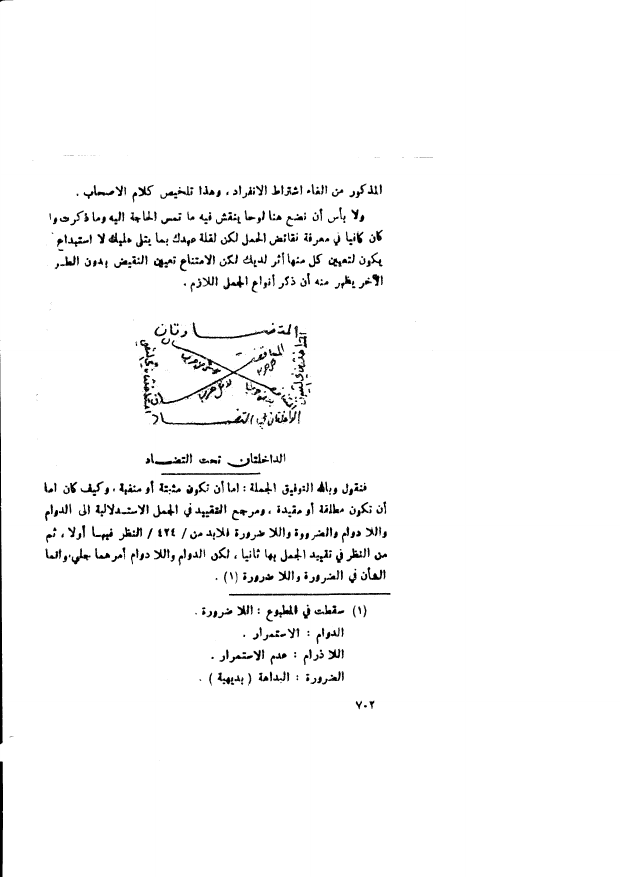 المذكور من الغاء اشتراط الانفراد ، وهذا تلخيص كلام الاصحاب .
ولا بأس أن نضع هنا لوحا ينقش فيه ما تمس الحاجة اليه وما ذكرت وا
كان كافيا في معرفة نقائض الجمل لكن لقلة عهدك بما يتلى عليك لا استبداع
يكون لتعيين كل منها أثر لديك لكن الامتناع تعيين النقيض بدون الطـر
الآخر يظهر منه أن ذكر أنواع الجمل اللازم .
المتضـــادتان
الداخلتان تحت التضـاد
الداخلتان تحت التضـــاد
فنقول وبالله التوفيق الجملة : اما أن تكون مثبتة أو منفية ، وكيف كان اما
أن تكون مطلقة أو مقيدة ، ومرجع التقييد في الجمل الاستـدلالية الى الدوام
واللا دوام والضرورة واللا ضرورة فلابد من / ٤٢٤ / النظر فيهـا أولا ، ثم
من النظر في تقييد الجمل بها ثانيا ، لكن الدوام واللا دوام أمرهما جلي.وانما
الشأن في الضرورة واللا ضرورة (١) .
(١) سقطت في المطبوع : اللا ضرورة .
الدوام : الاستمرار .
اللا ذرام : عدم الاستمرار .
الضرورة : البداهة ( بديهية ) .
٧٠٢